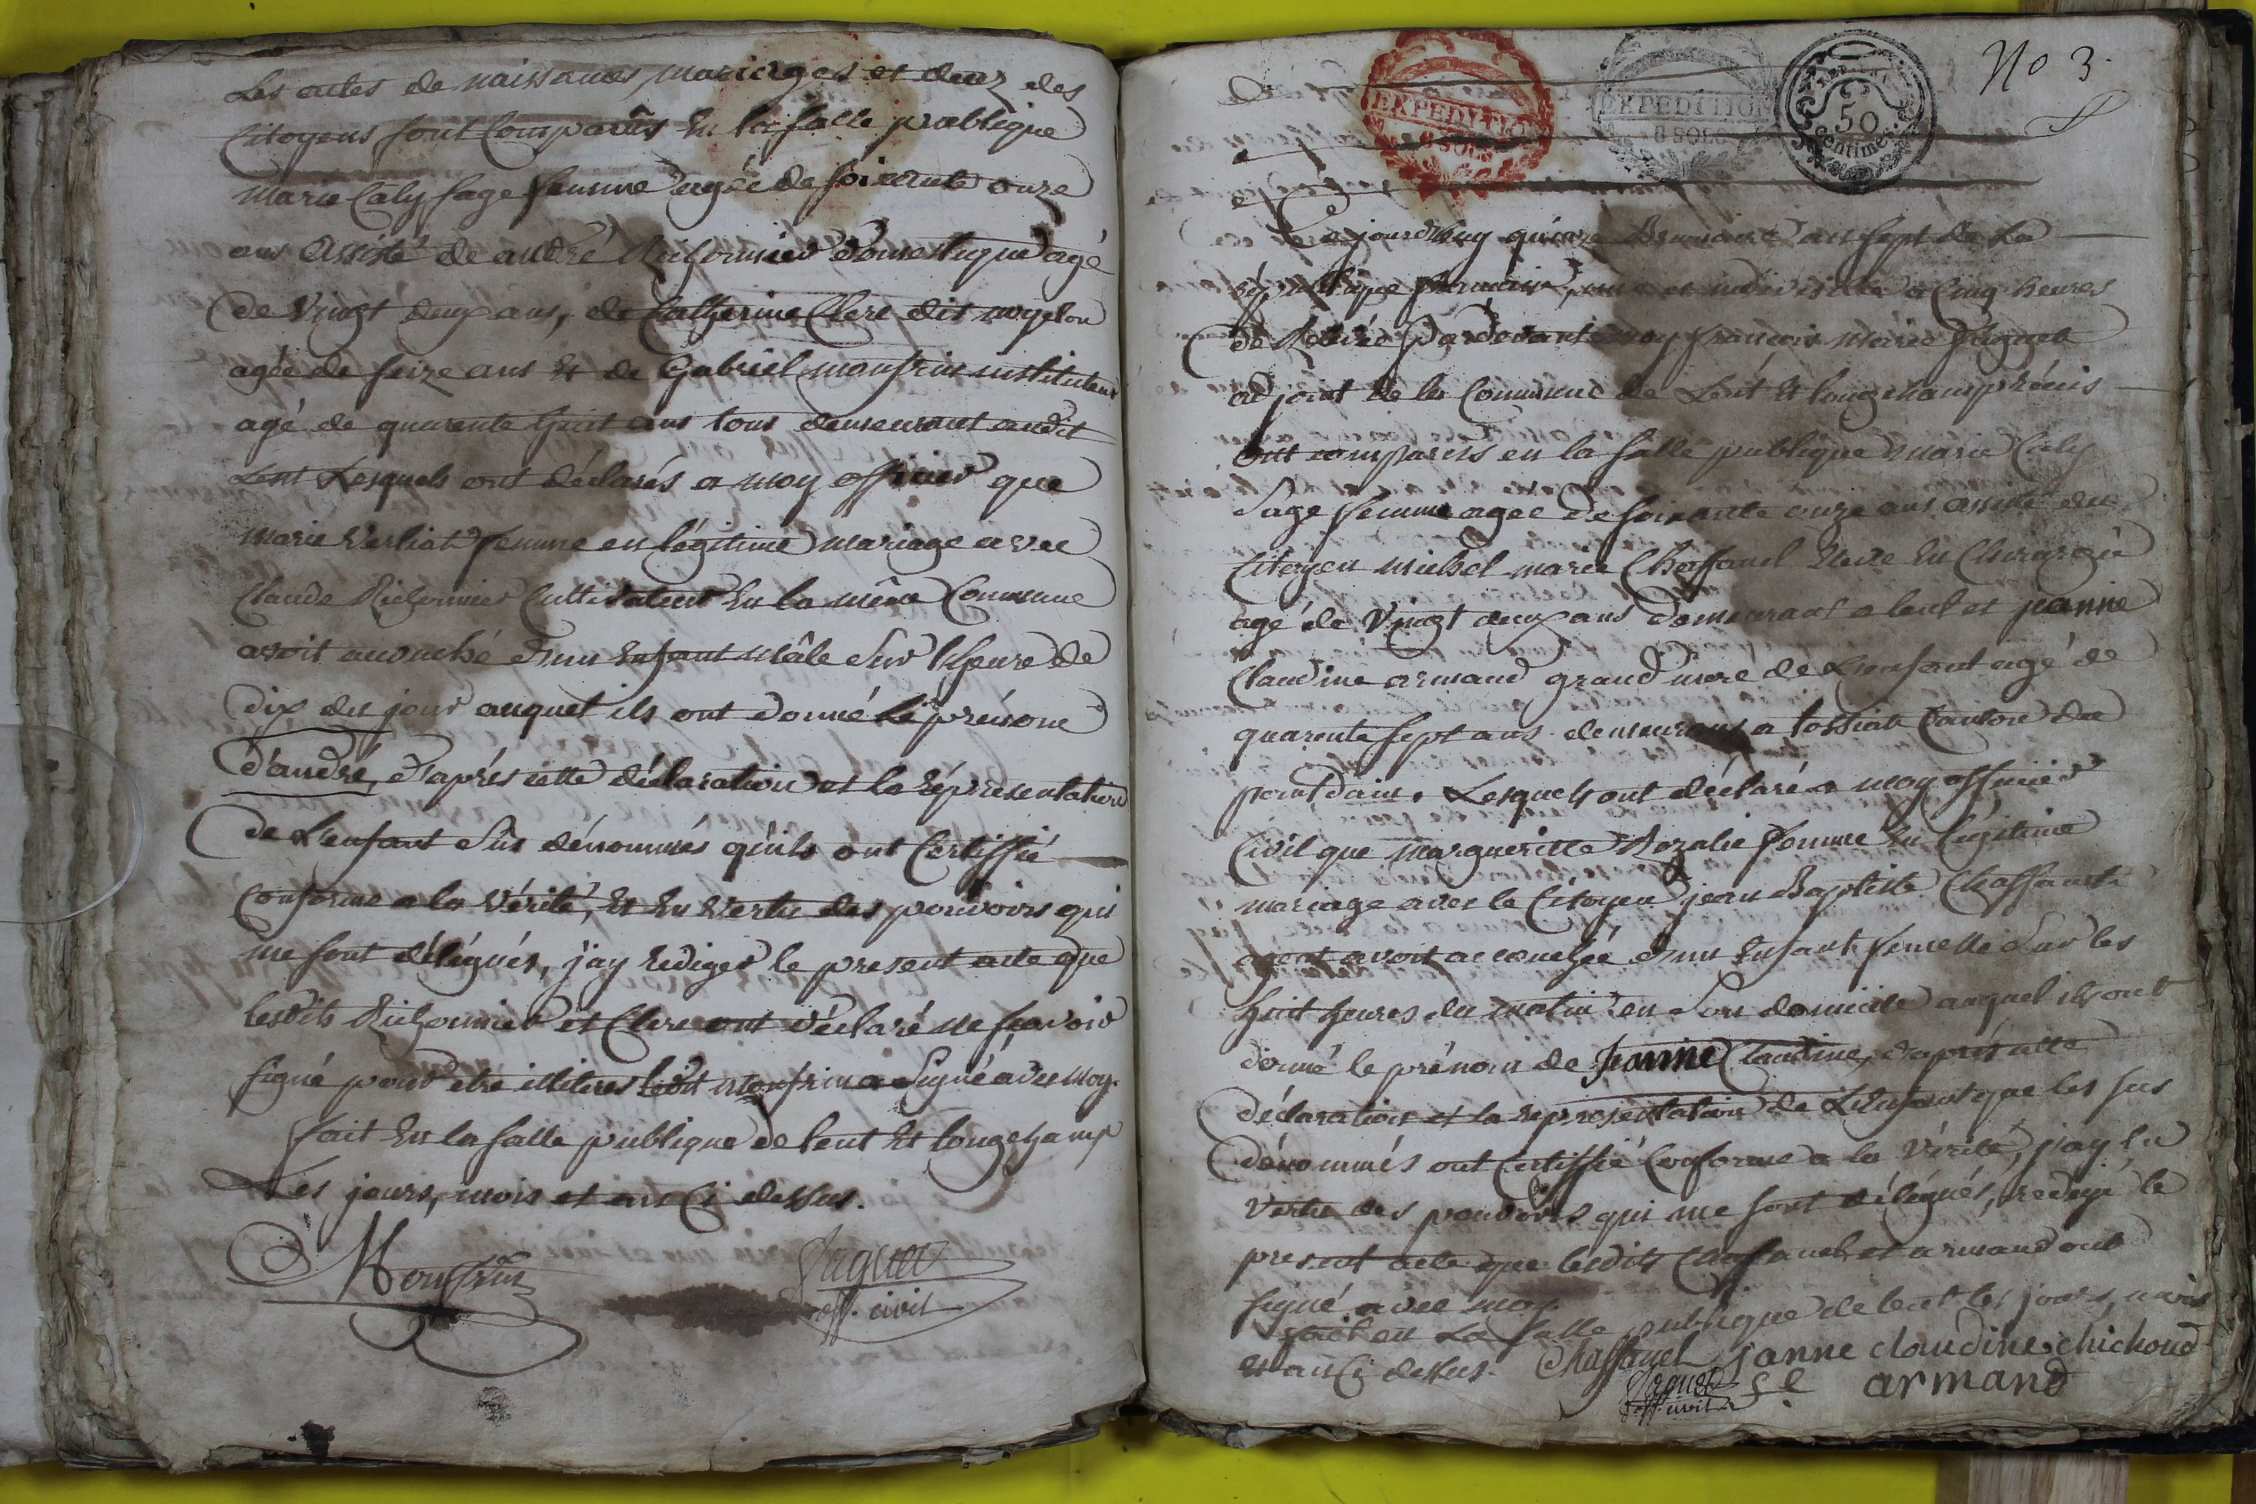 Les actes de naissances, mariages et decez des
Citoyens sont Comparûs En la salle publique
Marie Caly sage femme agée de soixante onze
ans Assisté de andré Richonnier domestique agé
de Vingt deux ans, de Catherine Clerc dit
agée de seize ans Et de Gabriel monfrin instituteur
agé de quarente huit ans tous demeurant audit
Lent Lesquels ont déclarés a moy officier que
marie femme en légitime mariage avec
Claude Richonnier Cultivateur En la même Commune
avoit acouché d'un Enfant mâle Sur l'heure de
dix du jour auquel ils ont donné le prénom
d'andré, d'après cette déclaration et la réprésentation
de L'enfant Sus dénommés qu'ils ont Certiffié
Conforme a la Vérité, Et En Vertu des pouvoirs qui
me sont délégués, j'ay rediger le present acte que
lesdits Richonnier et Clerc ont déclaré ne sçavoir
signé pour etre illitéres ledit monfrin a Signé avec moy.
fait En la salle publique de lent Et longchamp
Les jours, mois et an Ci dessus.
Monfrin
Jaquet
off. civil
No 3.
EXPEDITION
8 SOLS
EXPEDITION
8 SOLS
50
Centimes
Ce jourdhuy quinze Brumaire an sept de La
république française, une et indivisible a Cinq heures
de Relevé Pardevant moy françois marie Jaquet
adjoint de la Commune de Lent Et longchamp réünis
ont comparus en la salle publique marie Caly
Sage femme agée de soixante onze ans assisté du
Citoyen michel marie Chaffanel Eleve En Chirurgie
agé de Vingt deux ans demeurant a lent et jeanne
Claudine armand grand mere de L'enfant agé de
quarente sept ans demeurans a tossiat Canton du
pontdain. Lesquels ont déclaré a moy officier
Civil que margueritte Rozalie femme En légitime
mariage avec le Citoyen jean Baptiste Chaffanel
agent avoit acouchée d'un Enfant femelle Sur les
huit heures du matin en Son domicile auquel ils ont
donné le prénom de Jeanne Claudine, d'après cette
déclaration et la représentation de L'Enfant que les sus
dénommés ont Certiffié Conforme a la Vérité, j'ay En
Vertu des pouvoirs qui me sont délégués, redigé le
present acte que lesdits Chaffanel et armand ont
signé avec moy.
fait en La Salle publique de lent les jours, mois
et an Ci dessus. Chaffanel janne claudine chichoud
Jaquet fe armand
off. civil